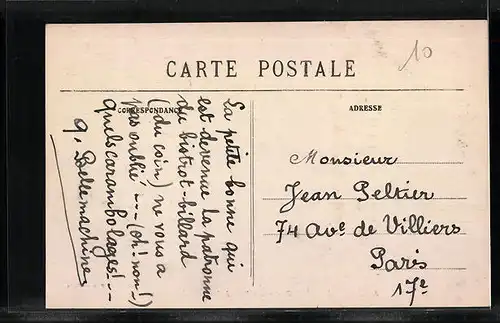 10
CARTE POSTALE
CORRESPONDANCE
ADRESSE
La petite bonne qui
est devenue la patronne
du bistrot-billard
(du coin) ne vous a
pas oublié --- (oh! non!-)
quels carambolages!--
g. Bellemachine
Monsieur
Jean Peltier
74 Ave de Villiers
Paris
17e